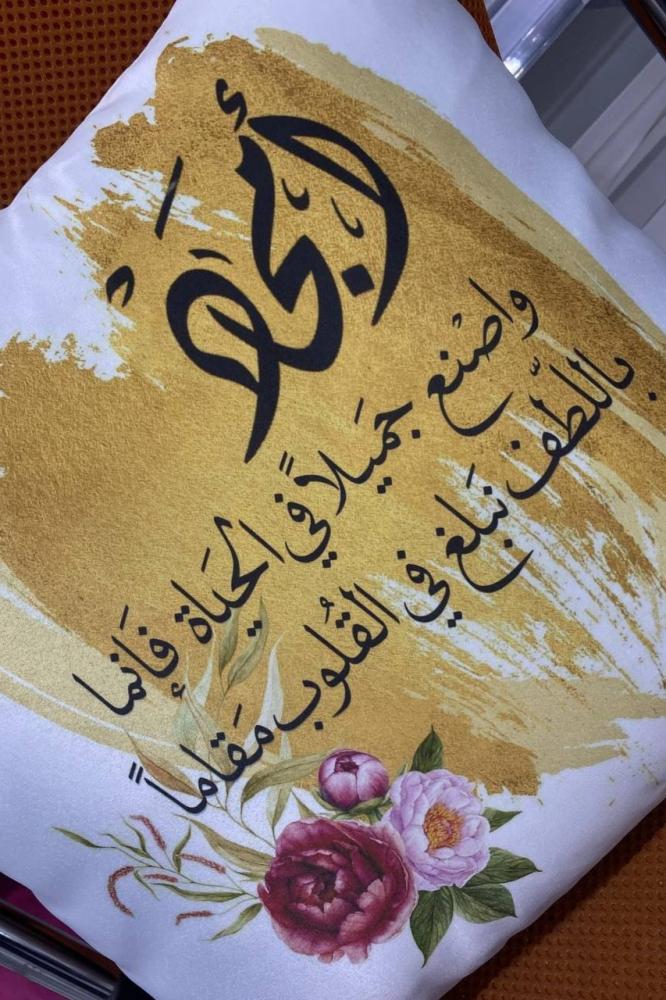 أمجَد
واصْنع جَميلاً في الحَياة فإنما
باللّطف نَبلغ في القُلوب مَقاماً